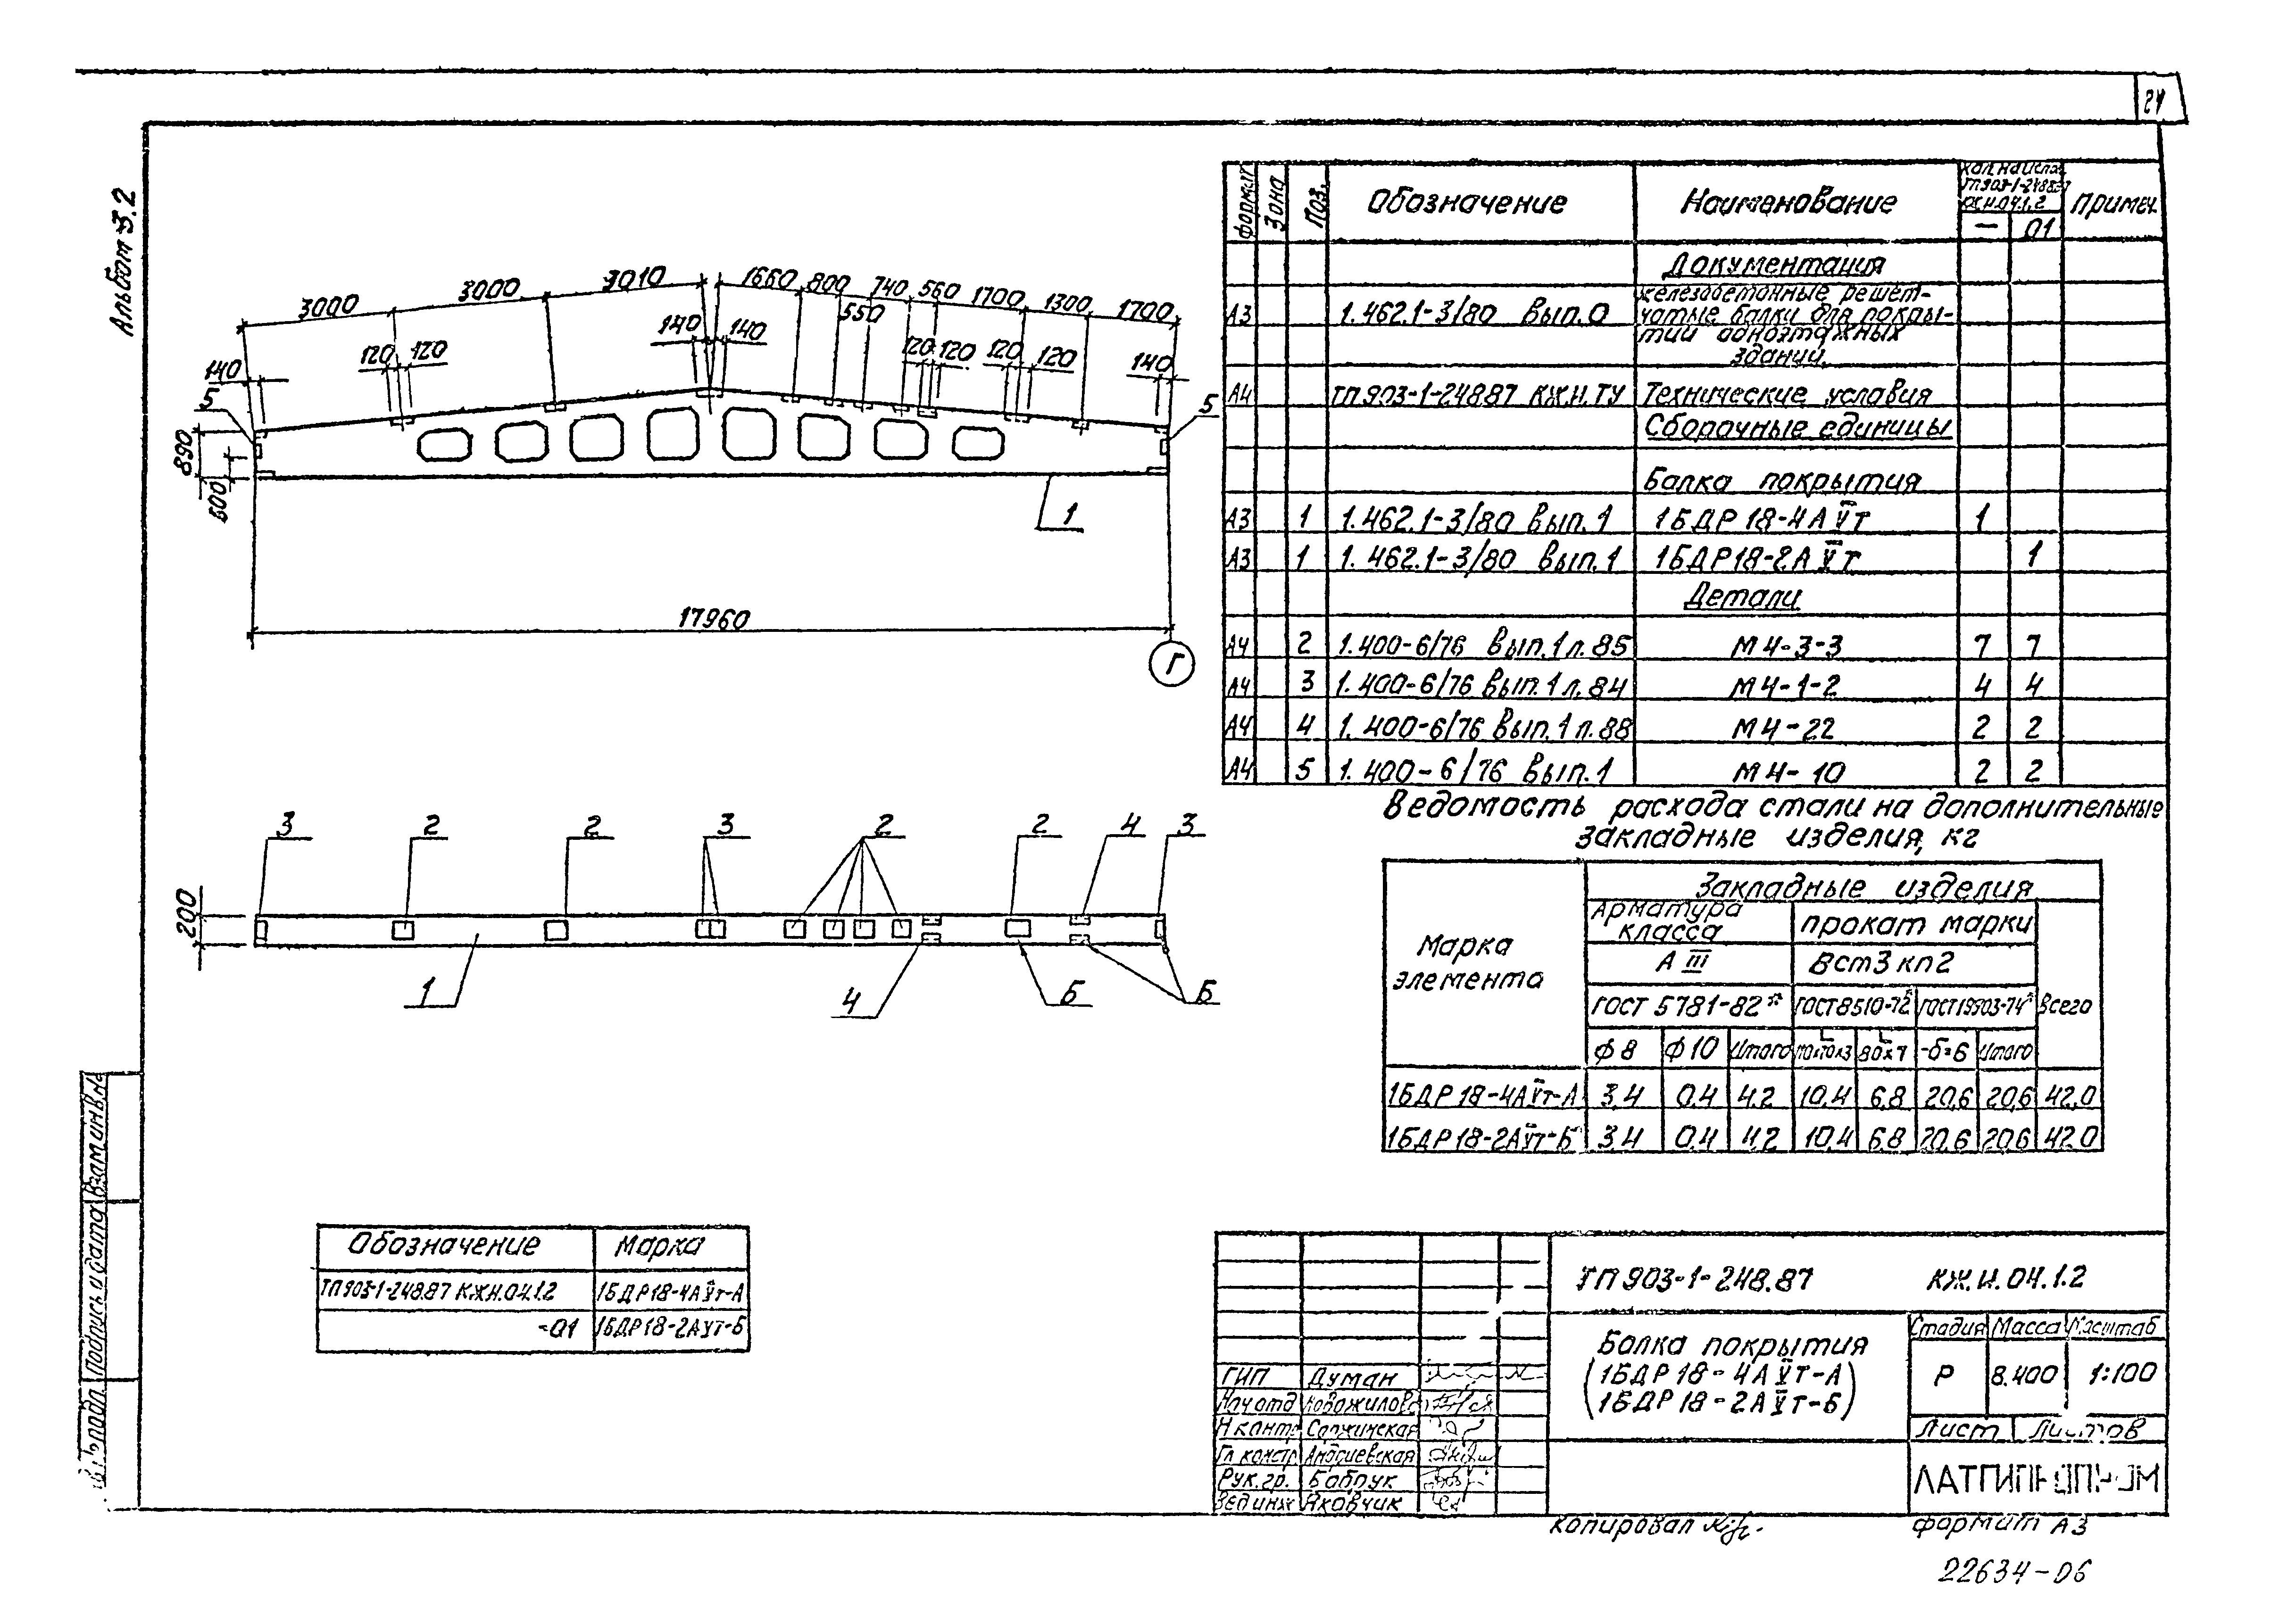 24
Альбом 3.2
3000 3000 3010 1660 800 740 560 1700 1300 1700
550
140 120 120 140 140 120 120 120 120 140
5 5
890
600
1
17960
Г
3 2 2 3 2 2 4 3
200
1 4 Б Б
Формат Зона Поз. Обозначение Наименование Кол. на испол. ТП 903-1-248.87 КЖ.И.04.1.2 Примеч.
— 01
Документация
А3 1.462.1-3/80 Вып.0 Железобетонные решет-
чатые балки для покры-
тий одноэтажных
зданий.
А4 ТП 903-1-248.87 КЖ.И.ТУ Технические условия
Сборочные единицы
Балка покрытия
А3 1 1.462.1-3/80 Вып.1 1БДР18-4АѴт 1
А3 1 1.462.1-3/80 Вып.1 1БДР18-2АѴт 1
Детали
А4 2 1.400-6/76 Вып.1 л.85 М4-3-3 7 7
А4 3 1.400-6/76 Вып.1 л.84 М4-1-2 4 4
А4 4 1.400-6/76 Вып.1 л.88 М4-22 2 2
А4 5 1.400-6/76 Вып.1 М4-10 2 2
Ведомость расхода стали на дополнительные
закладные изделия, кг
Марка элемента
Закладные изделия
Арматура класса прокат марки
А III ВСт3кп2
ГОСТ 5781-82* ГОСТ 8510-72* ГОСТ 19903-74* Всего
ф8 ф10 Итого 80×7 -δ=6 Итого
1БДР18-4АѴт-А 3,4 0,4 4.2 10,4 6,8 20,6 20,6 42,0
1БДР18-2АѴт-Б 3,4 0,4 4,2 10,4 6,8 20,6 20,6 42,0
Обозначение Марка
ТП903-1-248.87 КЖ.И.04.1.2 1БДР18-4АѴт-А
-01 1БДР18-2АѴт-Б
Взам.инв.№
Подпись и дата
подл.
ТП 903-1-248.87 КЖ.И.04.1.2
Балка покрытия
(1БДР18-4АѴт-А)
(1БДР18-2АѴт-Б)
Стадия Масса Масштаб
Р 8.400 1:100
Лист Листов
ГИП Думан
Нач отд Новожилова
Н контр
Гл. констр Андриевская
Рук. гр. Бабрук
Яковчик
ЛАТГИПРОПРОМ
Копировал
формат А3
22634-06